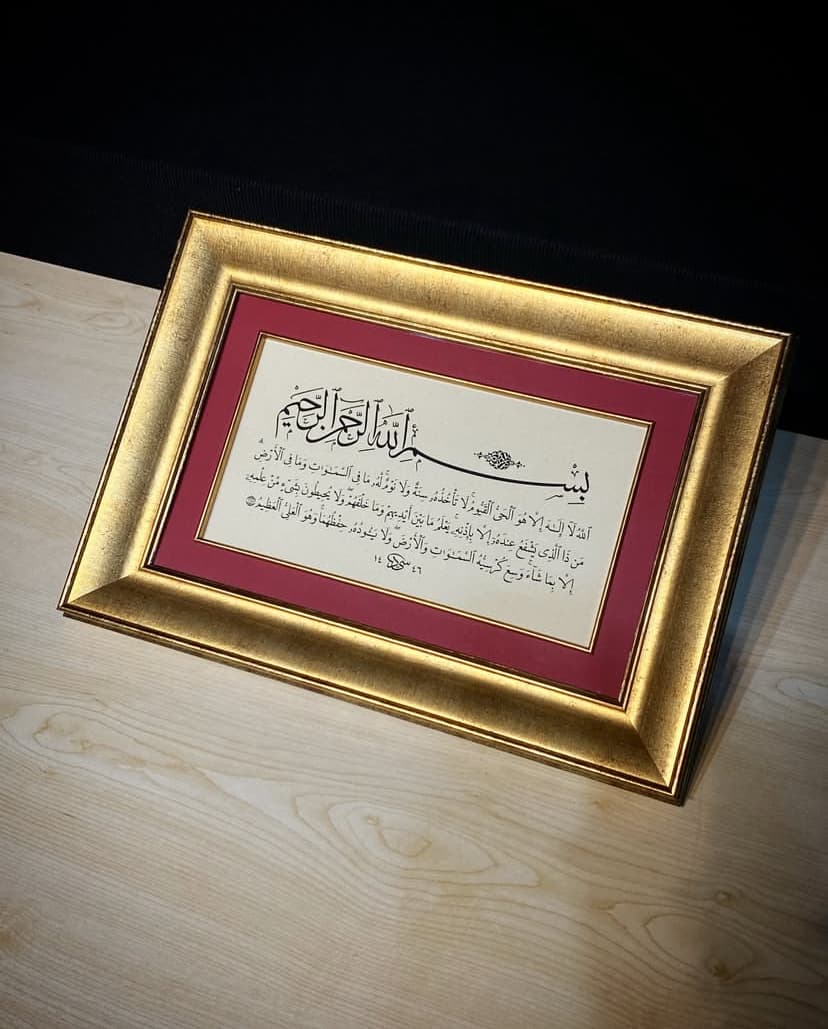 بِسْمِ ٱللَّهِ ٱلرَّحْمَٰنِ ٱلرَّحِيمِ
ٱللَّهُ لَآ إِلَٰهَ إِلَّا هُوَ ٱلْحَىُّ ٱلْقَيُّومُ لَا تَأْخُذُهُۥ سِنَةٌ وَلَا نَوْمٌ لَّهُۥ مَا فِى ٱلسَّمَٰوَٰتِ وَمَا فِى ٱلْأَرْضِ
مَن ذَا ٱلَّذِى يَشْفَعُ عِندَهُۥٓ إِلَّا بِإِذْنِهِۦ يَعْلَمُ مَا بَيْنَ أَيْدِيهِمْ وَمَا خَلْفَهُمْ وَلَا يُحِيطُونَ بِشَىْءٍ مِّنْ عِلْمِهِۦٓ
إِلَّا بِمَا شَآءَ وَسِعَ كُرْسِيُّهُ ٱلسَّمَٰوَٰتِ وَٱلْأَرْضَ وَلَا يَـُٔودُهُۥ حِفْظُهُمَا وَهُوَ ٱلْعَلِىُّ ٱلْعَظِيمُ
١٤ ٤٦